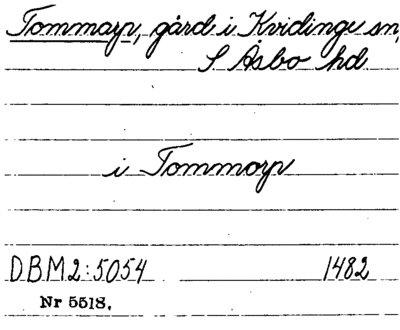 Tommarp, gård i Kvidinge sn,
S Åsbo hd
i Tommorp
DBM2:5054 1482
Nr 5518.